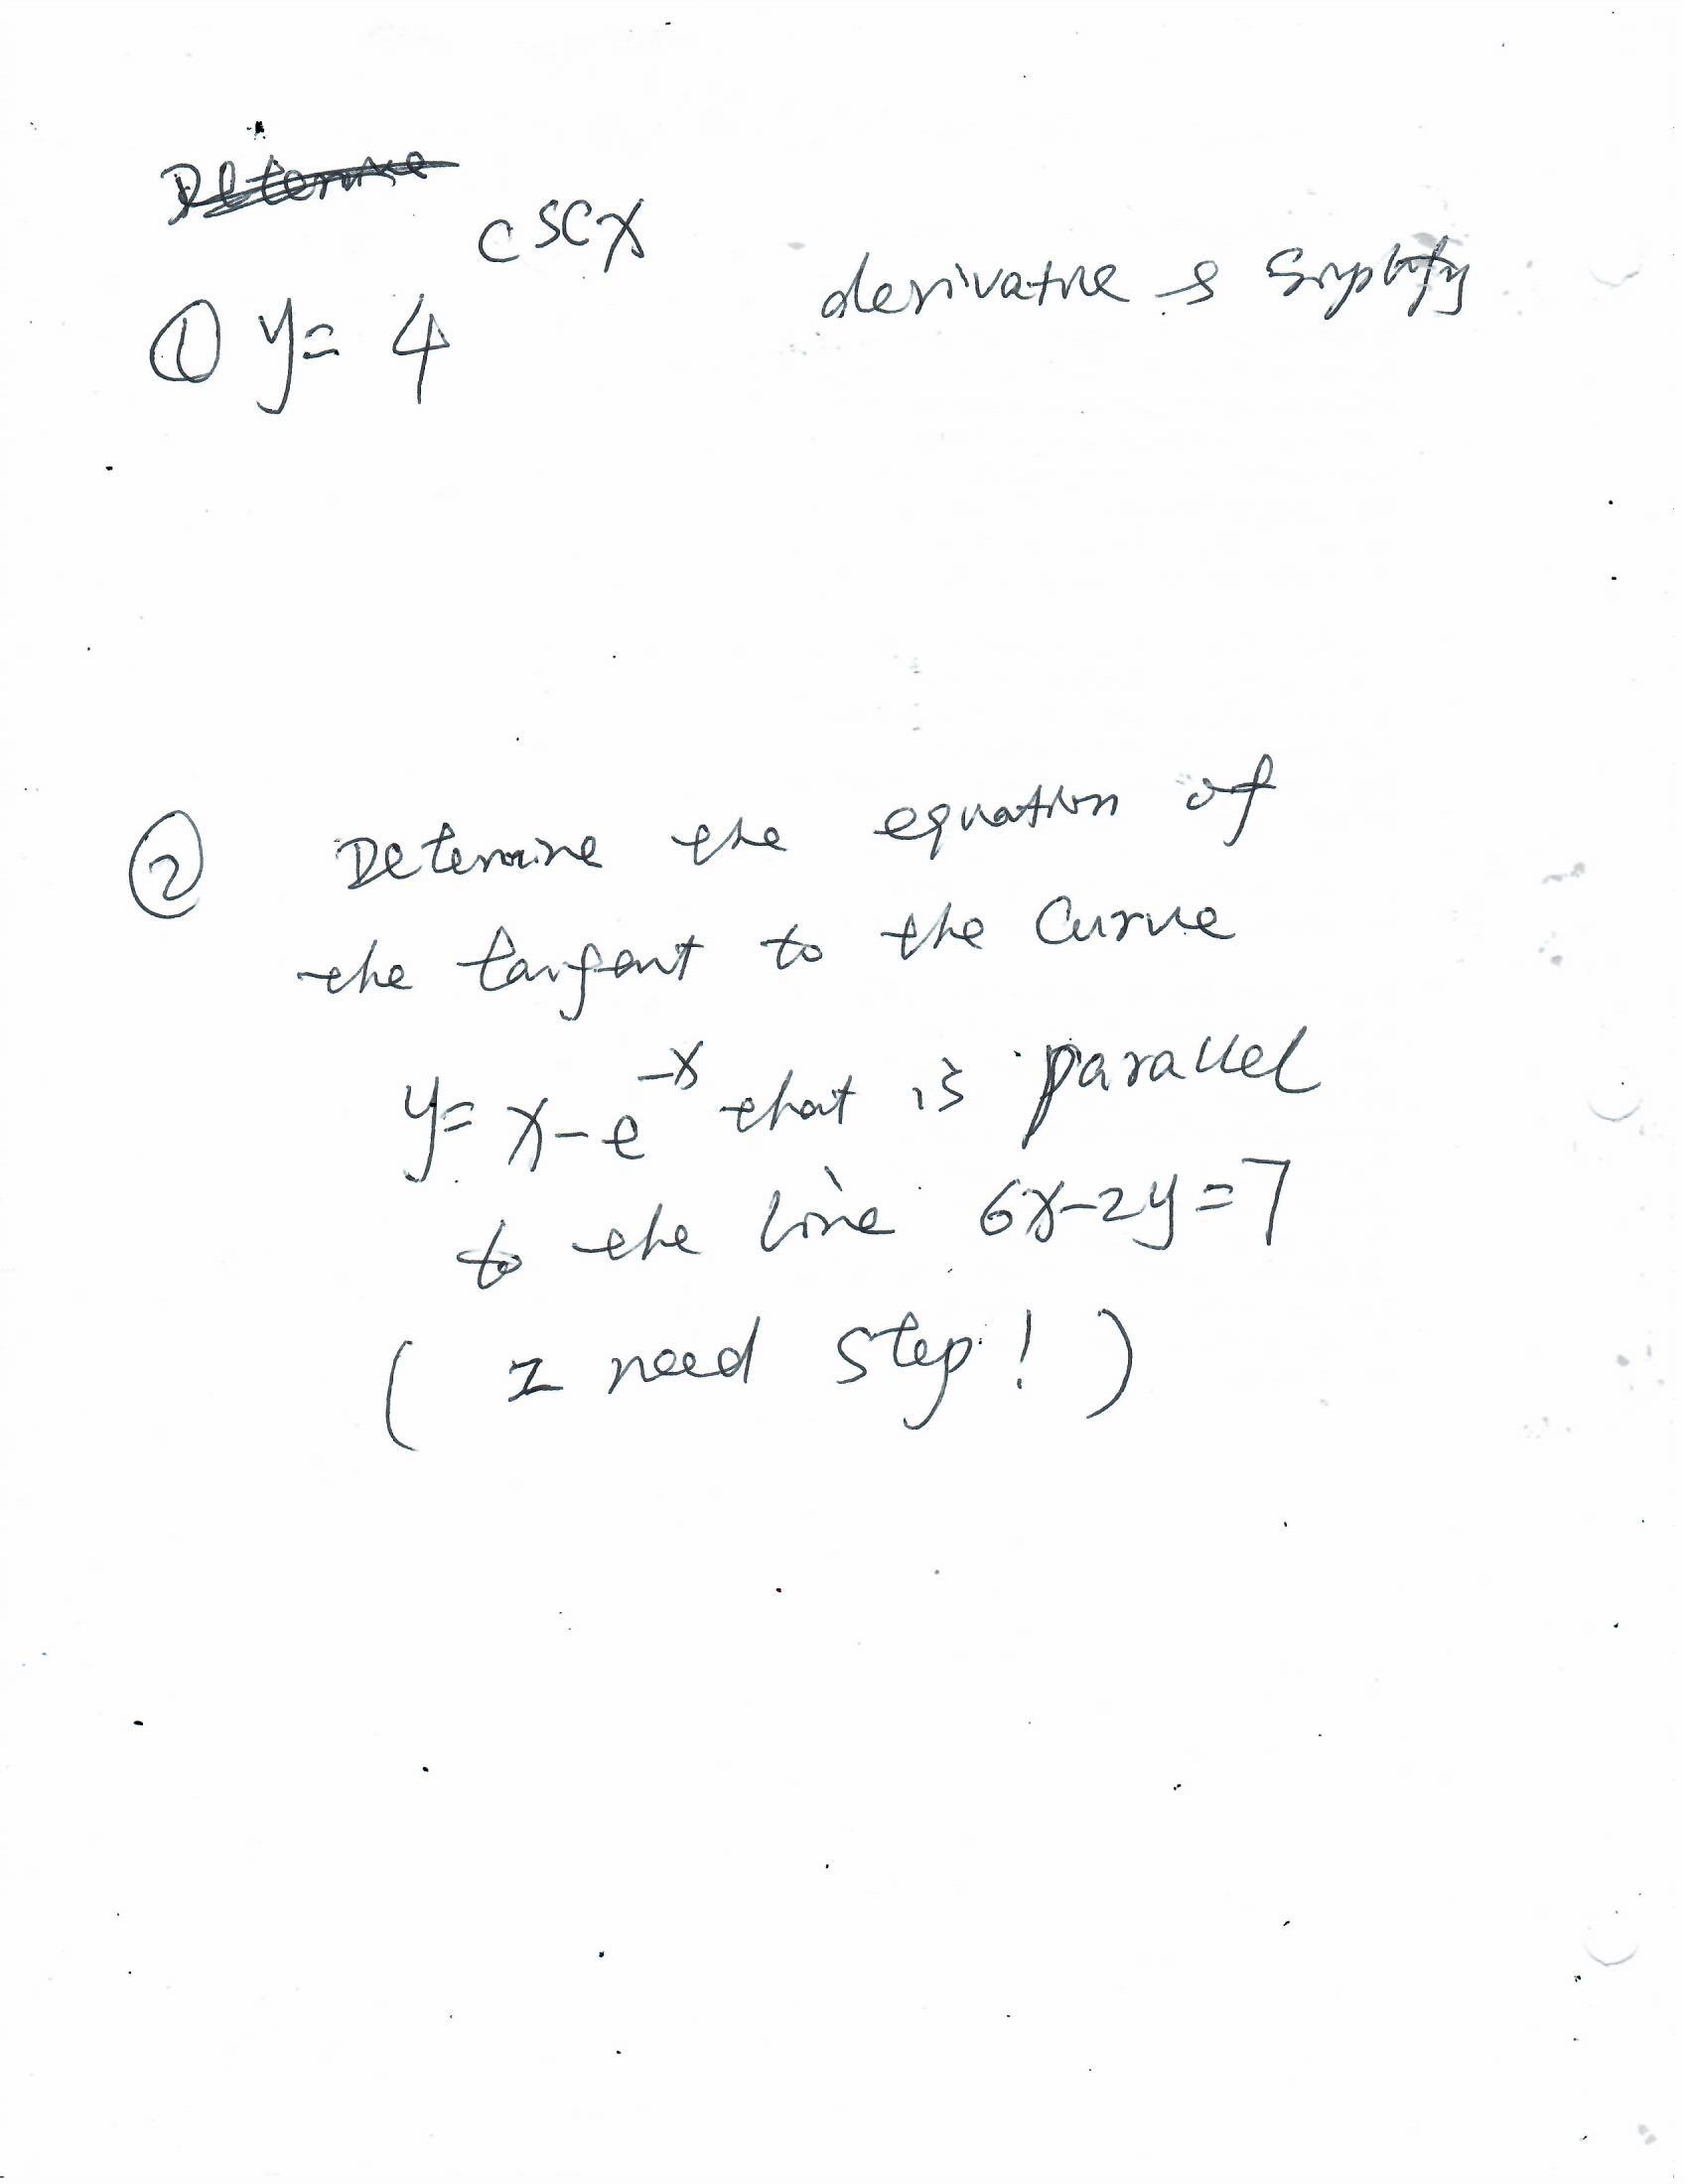 ① y = 4^cscx derivative & Simplify
② Determine the equation of
the tangent to the Curve
y = x - e^-x that is parallel
to the line 6x - 2y = 7
( I need step! )